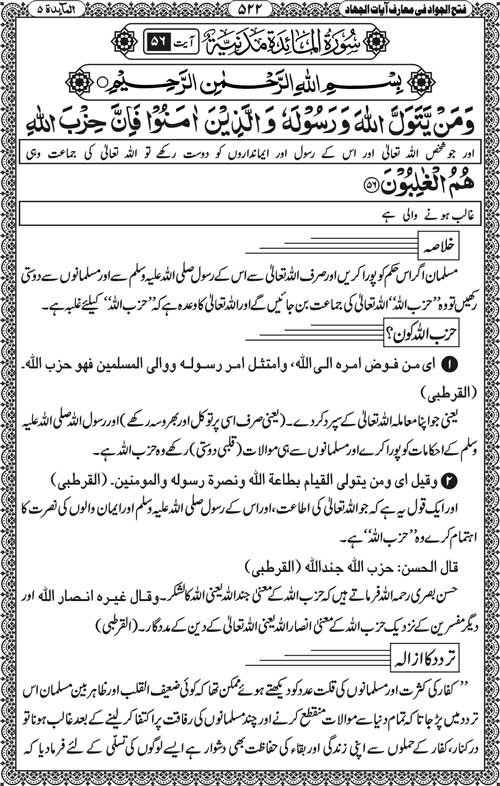 المائدة ۵
۵۲۲
فتح الجواد فی معارف آیات الجهاد
سُوْرَةُ الْمَائِدَةِ مَدَنِيَّةٌ آیت ۵۶
بِسْمِ اللهِ الرَّحْمٰنِ الرَّحِيْمِ
وَمَنْ يَّتَوَلَّ اللهَ وَرَسُوْلَهٗ وَالَّذِيْنَ اٰمَنُوْا فَاِنَّ حِزْبَ اللهِ
اور جو شخص اللہ تعالیٰ اور اس کے رسول اور ایمانداروں کو دوست رکھے تو اللہ تعالیٰ کی جماعت وہی
هُمُ الْغٰلِبُوْنَ ﴿۵۶﴾
غالب ہونے والی ہے
خلاصہ
مسلمان اگر اس حکم کو پورا کریں اور صرف اللہ تعالیٰ سے اس کے رسول صلی اللہ علیہ وسلم سے اور مسلمانوں سے دوستی
رکھیں تو وہ ’’حزب اللہ‘‘ اللہ تعالیٰ کی جماعت بن جائیں گے اور اللہ تعالیٰ کا وعدہ ہے کہ ’’حزب اللہ‘‘ کیلئے غلبہ ہے۔
حزب اللہ کون؟
۱ ای من فوض امره الی الله، وامتثل امر رسوله ووالی المسلمین فهو حزب الله۔
(القرطبی)
یعنی جو اپنا معاملہ اللہ تعالیٰ کے سپرد کر دے۔ (یعنی صرف اسی پر توکل اور بھروسہ رکھے) اور رسول اللہ صلی اللہ علیہ
وسلم کے احکامات کو پورا کرے اور مسلمانوں سے ہی موالات (قلبی دوستی) رکھے وہ حزب اللہ ہے۔
۲ وقیل ای ومن یتولی القیام بطاعة الله ونصرة رسوله والمومنین۔ (القرطبی)
اور ایک قول یہ ہے کہ جو اللہ تعالیٰ کی اطاعت، اور اس کے رسول صلی اللہ علیہ وسلم اور ایمان والوں کی نصرت کا
اہتمام کرے وہ ’’حزب اللہ‘‘ ہے۔
قال الحسن: حزب الله جندالله (القرطبی)
حسن بصری رحمہ اللہ فرماتے ہیں کہ حزب اللہ کے معنی جند اللہ یعنی اللہ کا لشکر۔ وقال غیره انصار الله اور
دیگر مفسرین کے نزدیک حزب اللہ کے معنی انصار اللہ یعنی اللہ تعالیٰ کے دین کے مددگار۔ (القرطبی)
تردد کا ازالہ
’’کفار کی کثرت اور مسلمانوں کی قلت عدد کو دیکھتے ہوئے ممکن تھا کہ کوئی ضعیف القلب اور ظاہر بین مسلمان اس
تردد میں پڑ جاتا کہ تمام دنیا سے موالات منقطع کرنے اور چند مسلمانوں کی رفاقت پر اکتفا کر لینے کے بعد غالب ہونا تو
درکنار، کفار کے حملوں سے اپنی زندگی اور بقاء کی حفاظت بھی دشوار ہے ایسے لوگوں کی تسلّی کے لئے فرما دیا کہ